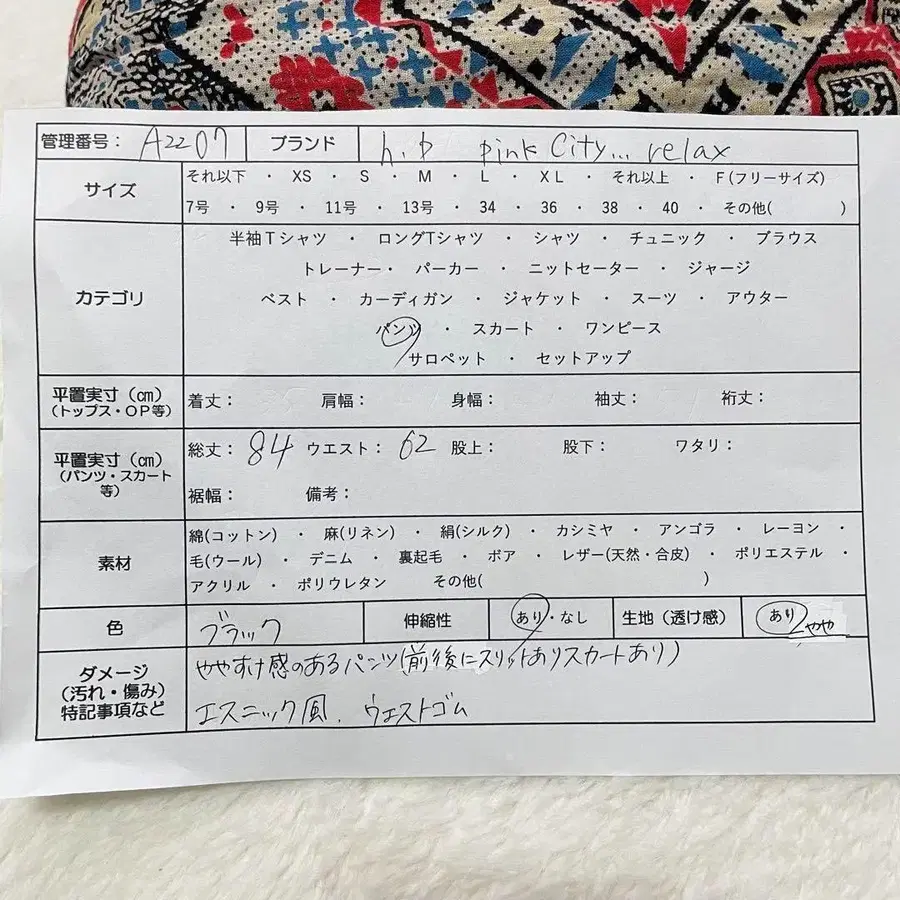 管理番号： A2207 ブランド h.p pink City... relax
サイズ それ以下 ・ XS ・ S ・ M ・ L ・ XL ・ それ以上 ・ F(フリーサイズ)
7号 ・ 9号 ・ 11号 ・ 13号 ・ 34 ・ 36 ・ 38 ・ 40 ・ その他( )
カテゴリ
半袖Tシャツ ・ ロングTシャツ ・ シャツ ・ チュニック ・ ブラウス
トレーナー・ パーカー ・ ニットセーター ・ ジャージ
ベスト ・ カーディガン ・ ジャケット ・ スーツ ・ アウター
パンツ ・ スカート ・ ワンピース
サロペット ・ セットアップ
平置実寸（㎝）
(トップス・OP等)
着丈： 肩幅： 身幅： 袖丈： 裄丈：
平置実寸（㎝）
(パンツ・スカート
等)
総丈： 84 ウエスト： 62 股上： 股下： ワタリ：
裾幅： 備考：
素材
綿(コットン) ・ 麻(リネン) ・ 絹(シルク) ・ カシミヤ ・ アンゴラ ・ レーヨン ・
毛(ウール) ・ デニム ・ 裏起毛 ・ ボア ・ レザー(天然・合皮) ・ ポリエステル ・
アクリル ・ ポリウレタン その他( )
色 ブラック 伸縮性 あり・なし 生地（透け感） あり やや
ダメージ
（汚れ・傷み）
特記事項など
ややすけ感のあるパンツ(前後にスリットありスカートあり)
エスニック風、ウエストゴム